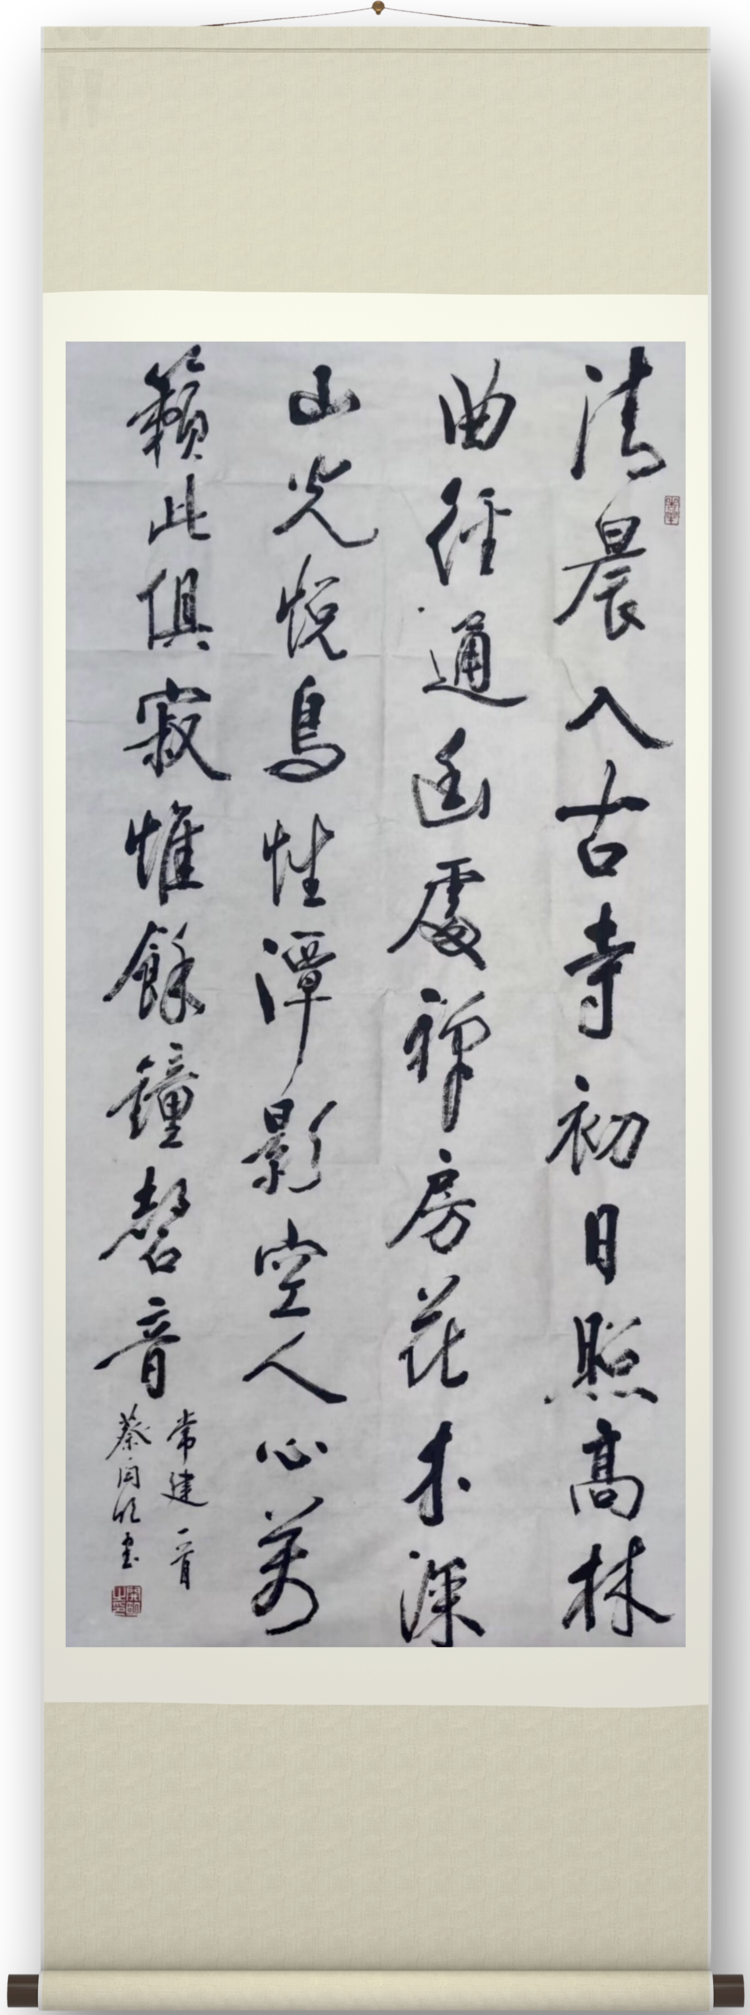 清晨入古寺初日照高林
曲径通幽處禅房花木深
山光悦鳥性潭影空人心萬
籟此俱寂惟餘鐘磬音
常建一首
蔡